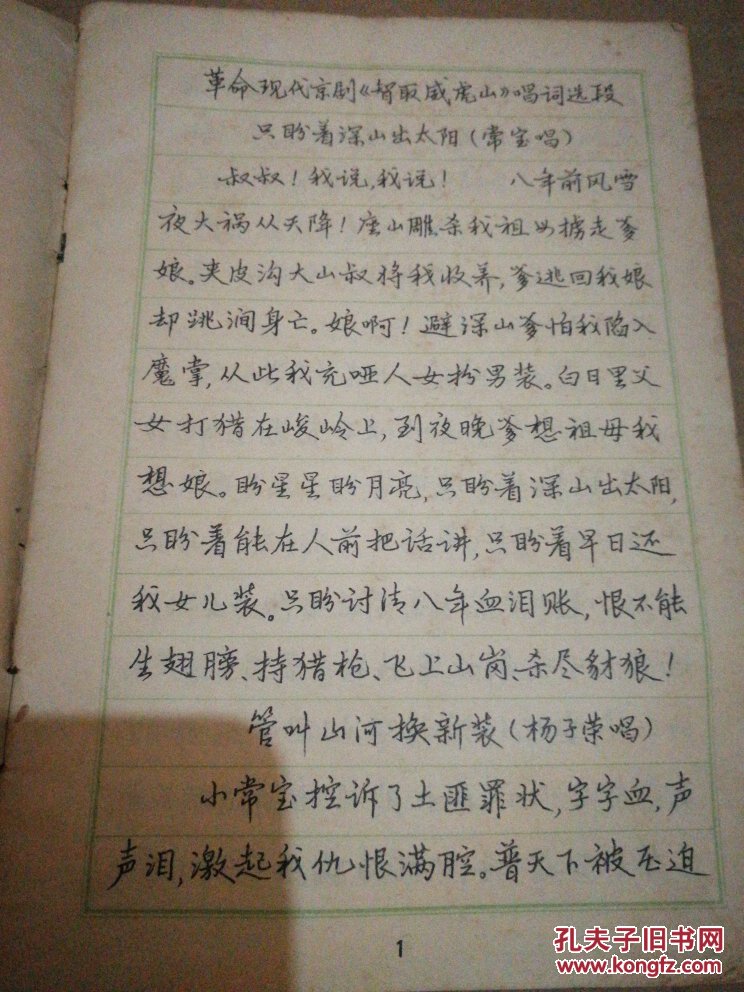 革命现代京剧《智取威虎山》唱词选段
只盼着深山出太阳(常宝唱)
叔叔！我说,我说！ 八年前风雪
夜大祸从天降！座山雕杀我祖母掳走爹
娘。夹皮沟大山叔将我收养,爹逃回我娘
却跳涧身亡。娘啊！避深山爹怕我陷入
魔掌,从此我充哑人女扮男装。白日里父
女打猎在峻岭上,到夜晚爹想祖母我
想娘。盼星星盼月亮,只盼着深山出太阳,
只盼着能在人前把话讲,只盼着早日还
我女儿装。只盼讨清八年血泪账,恨不能
生翅膀、持猎枪、飞上山岗、杀尽豺狼！
管叫山河换新装(杨子荣唱)
小常宝控诉了土匪罪状,字字血,声
声泪,激起我仇恨满腔。普天下被压迫
1
孔夫子旧书网
www.kongfz.com